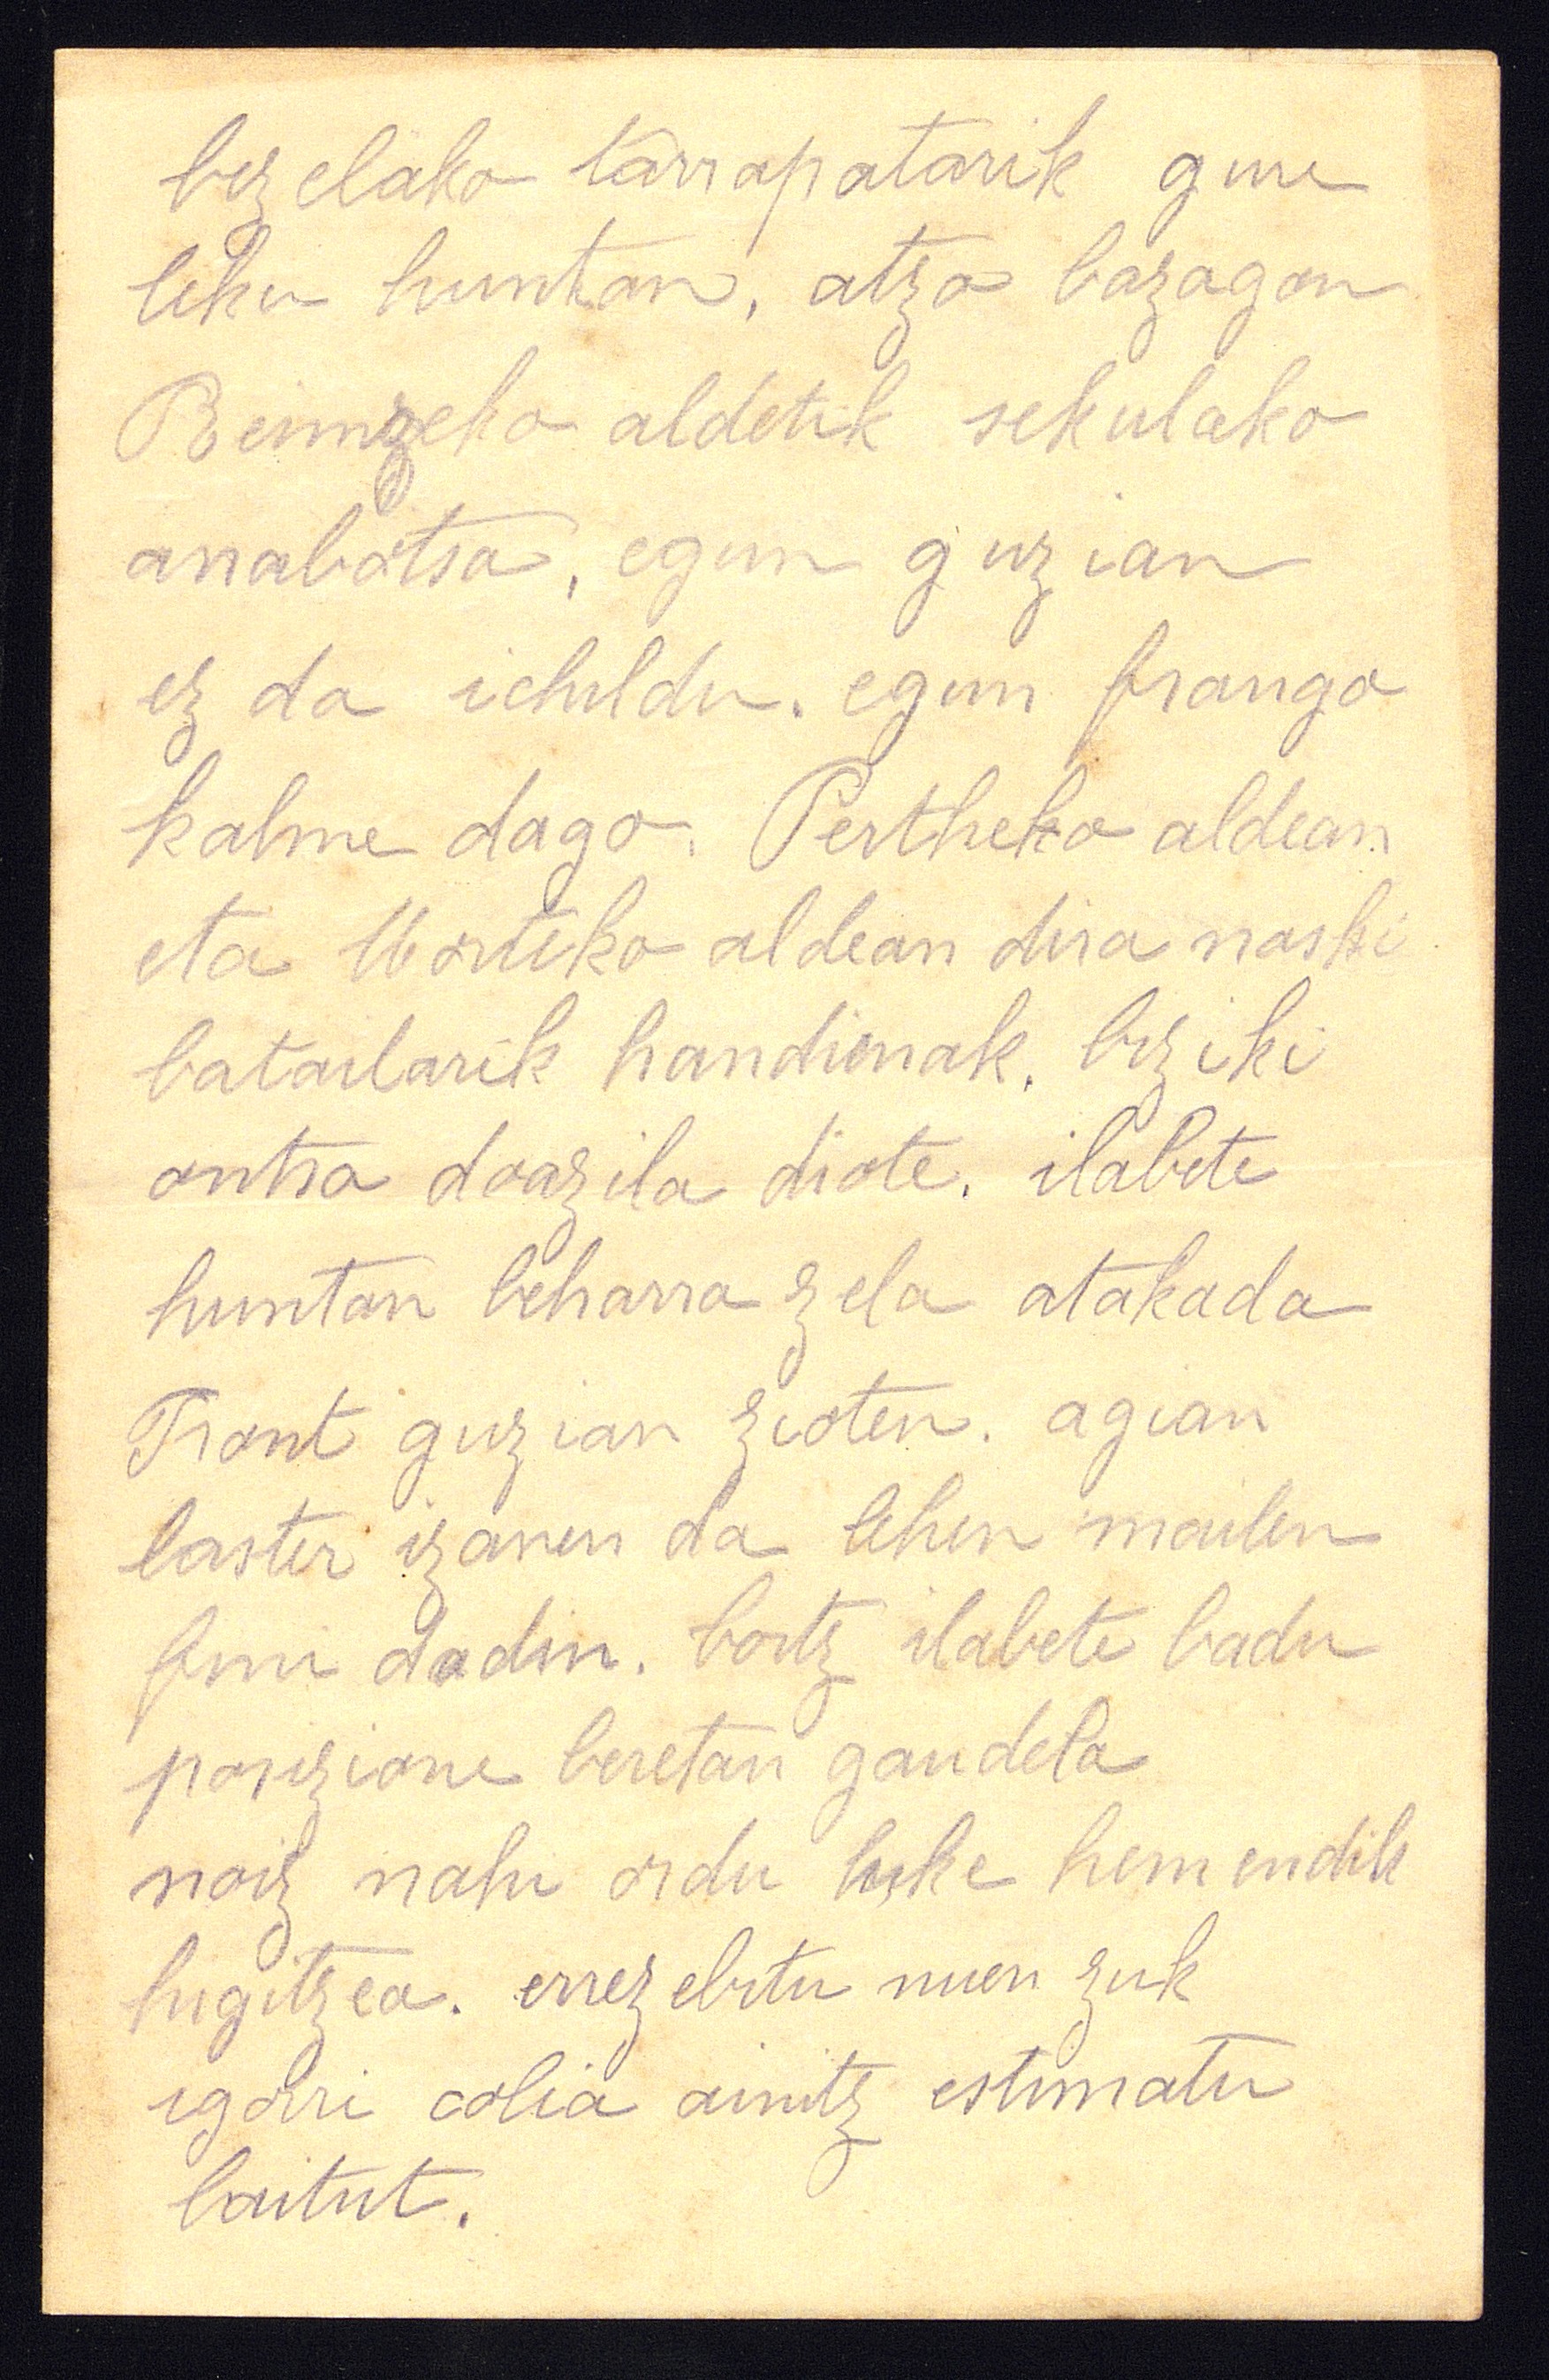 bezelako tarrapatarik gure
leku huntan, atzo bazagon
Reimzeko aldetik sekulako
arrabotsa, egun guzian
ez da ichildu. egun frango
kalme dago. Pertheko aldean
eta Norteko aldean dira naski
batailarik handienak. biziki
ontsa doazila diote. ilabete
huntan beharra zela atakada
Front guzian zioten. agian
laster izanen da lehen mailen
fini dadin. bortz ilabete badu
posizione beretan gaudela
noiz nahi ordu luke hemendik
higitzea. errezebitu nuen zuk
igorri colia ainitz estimatu
baitut.